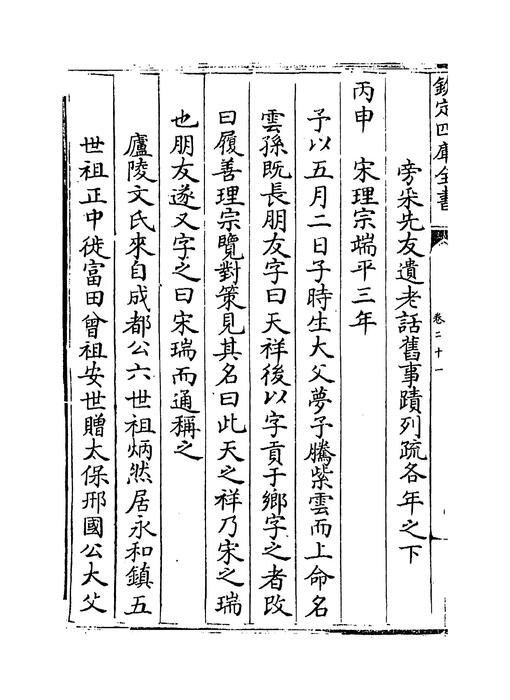 欽定四庫全書
卷二十一
旁采先友遺老話舊事蹟列疏各年之下
丙申　宋理宗端平三年
予以五月二日子時生大父夢予騰紫雲而上命名
雲孫既長朋友字曰天祥後以字貢于鄉字之者改
曰履善理宗覽對策見其名曰此天之祥乃宋之瑞
也朋友遂又字之曰宋瑞而通稱之
廬陵文氏來自成都公六世祖炳然居永和鎮五
世祖正中徙富田曾祖安世贈太保邢國公大父